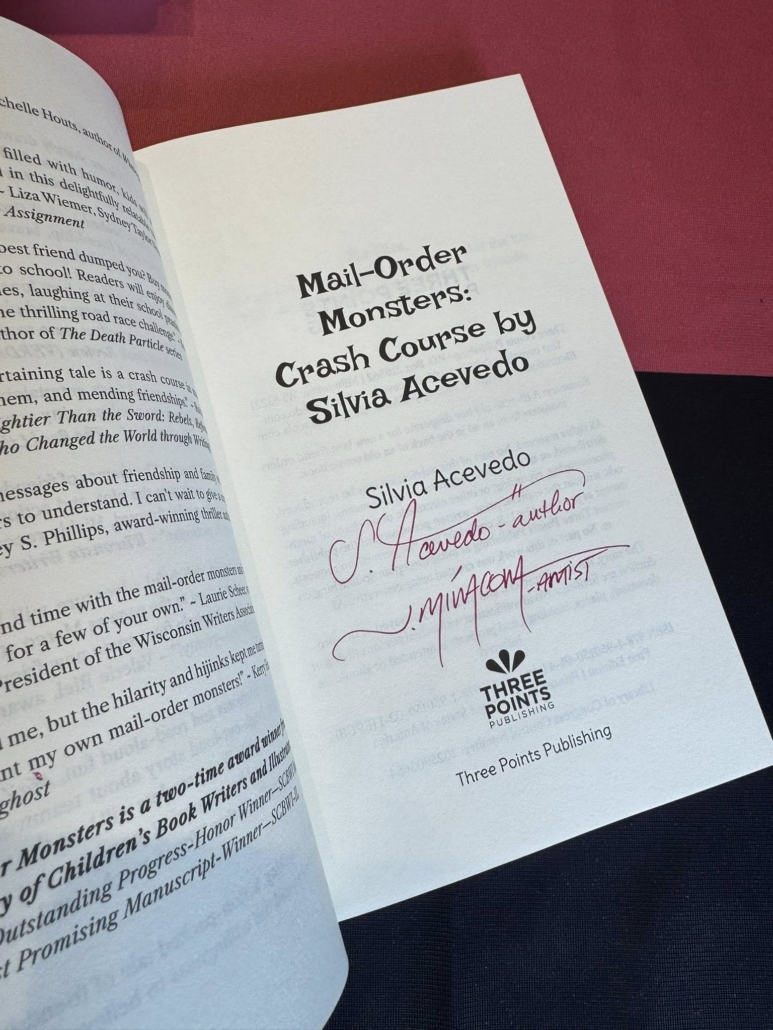 chelle Houts, author of
filled with humor, kids
in this delightfully
- Liza Wiemer, Sydney Taylor
Assignment
best friend dumped you? Buy
to school! Readers will enjoy
es, laughing at their school
he thrilling road race challenge." -
thor of The Death Particle series
rtaining tale is a crash course in
hem, and mending friendships." -
ghtier Than the Sword: Rebels,
ho Changed the World through Writing
messages about friendship and family
rs to understand. I can't wait to give a
ey S. Phillips, award-winning thriller
nd time with the mail-order monsters
for a few of your own." ~ Laurie
President of the Wisconsin Writers
me, but the hilarity and hijinks kept me
nt my own mail-order monsters!" - Kerry
ghost
r Monsters is a two-time award winner
y of Children's Book Writers and
Outstanding Progress-Honor Winner—SCBWI
st Promising Manuscript-Winner—SCBWI-IL
Mail-Order
Monsters:
Crash Course by
Silvia Acevedo
Silvia Acevedo
S. Acevedo - author
J. MIÑACOM - ARTIST
THREE
POINTS
PUBLISHING
Three Points Publishing